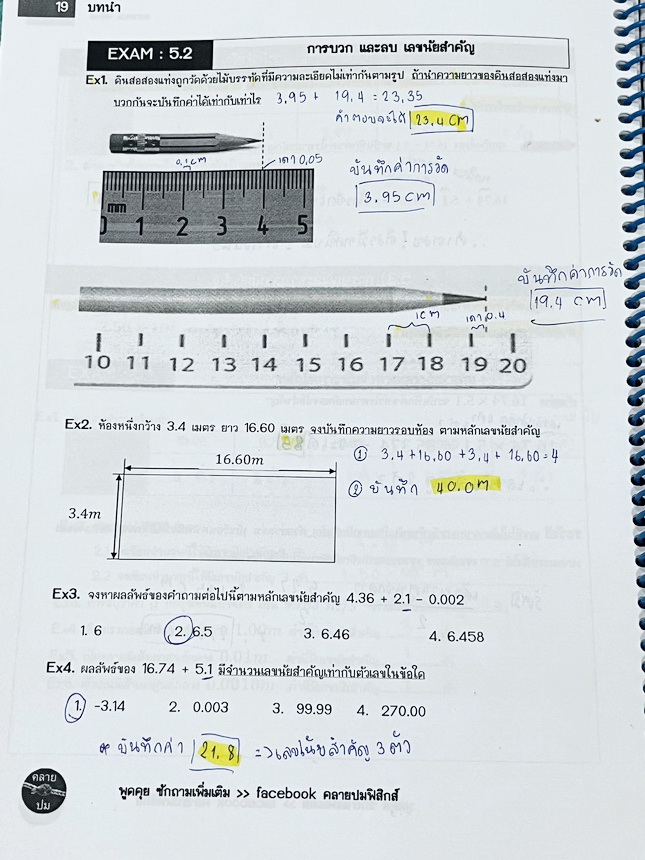 19 บทนำ
EXAM : 5.2 การบวก และลบ เลขนัยสำคัญ
Ex1. ดินสอสองแท่งถูกวัดด้วยไม้บรรทัดที่มีความละเอียดไม่เท่ากันตามรูป ถ้านำความยาวของดินสอสองแท่งมา
บวกกันจะบันทึกค่าได้เท่ากับเท่าไร 3.95 + 19.4 = 23.35
คำตอบจะได้ 23.4 cm
0.1 cm เดา 0.05
บันทึกค่าการวัด
3.95 cm
mm
0 1 2 3 4 5
บันทึกค่าการวัด
19.4 cm
1cm เดา 0.4
10 11 12 13 14 15 16 17 18 19 20
Ex2. ห้องหนึ่งกว้าง 3.4 เมตร ยาว 16.60 เมตร จงบันทึกความยาวรอบห้อง ตามหลักเลขนัยสำคัญ
16.60m
① 3.4 + 16.60 + 3.4 + 16.60 = 4
② บันทึก 40.0 m
3.4m
Ex3. จงหาผลลัพธ์ของคำถามต่อไปนี้ตามหลักเลขนัยสำคัญ 4.36 + 2.1 − 0.002
1. 6 2. 6.5 3. 6.46 4. 6.458
Ex4. ผลลัพธ์ของ 16.74 + 5.1 มีจำนวนเลขนัยสำคัญเท่ากับตัวเลขในข้อใด
1. -3.14 2. 0.003 3. 99.99 4. 270.00
บันทึกค่า 21.8 => เลขนัยสำคัญ 3 ตัว
คลาย
ปม
พูดคุย ซักถามเพิ่มเติม >> facebook คลายปมฟิสิกส์